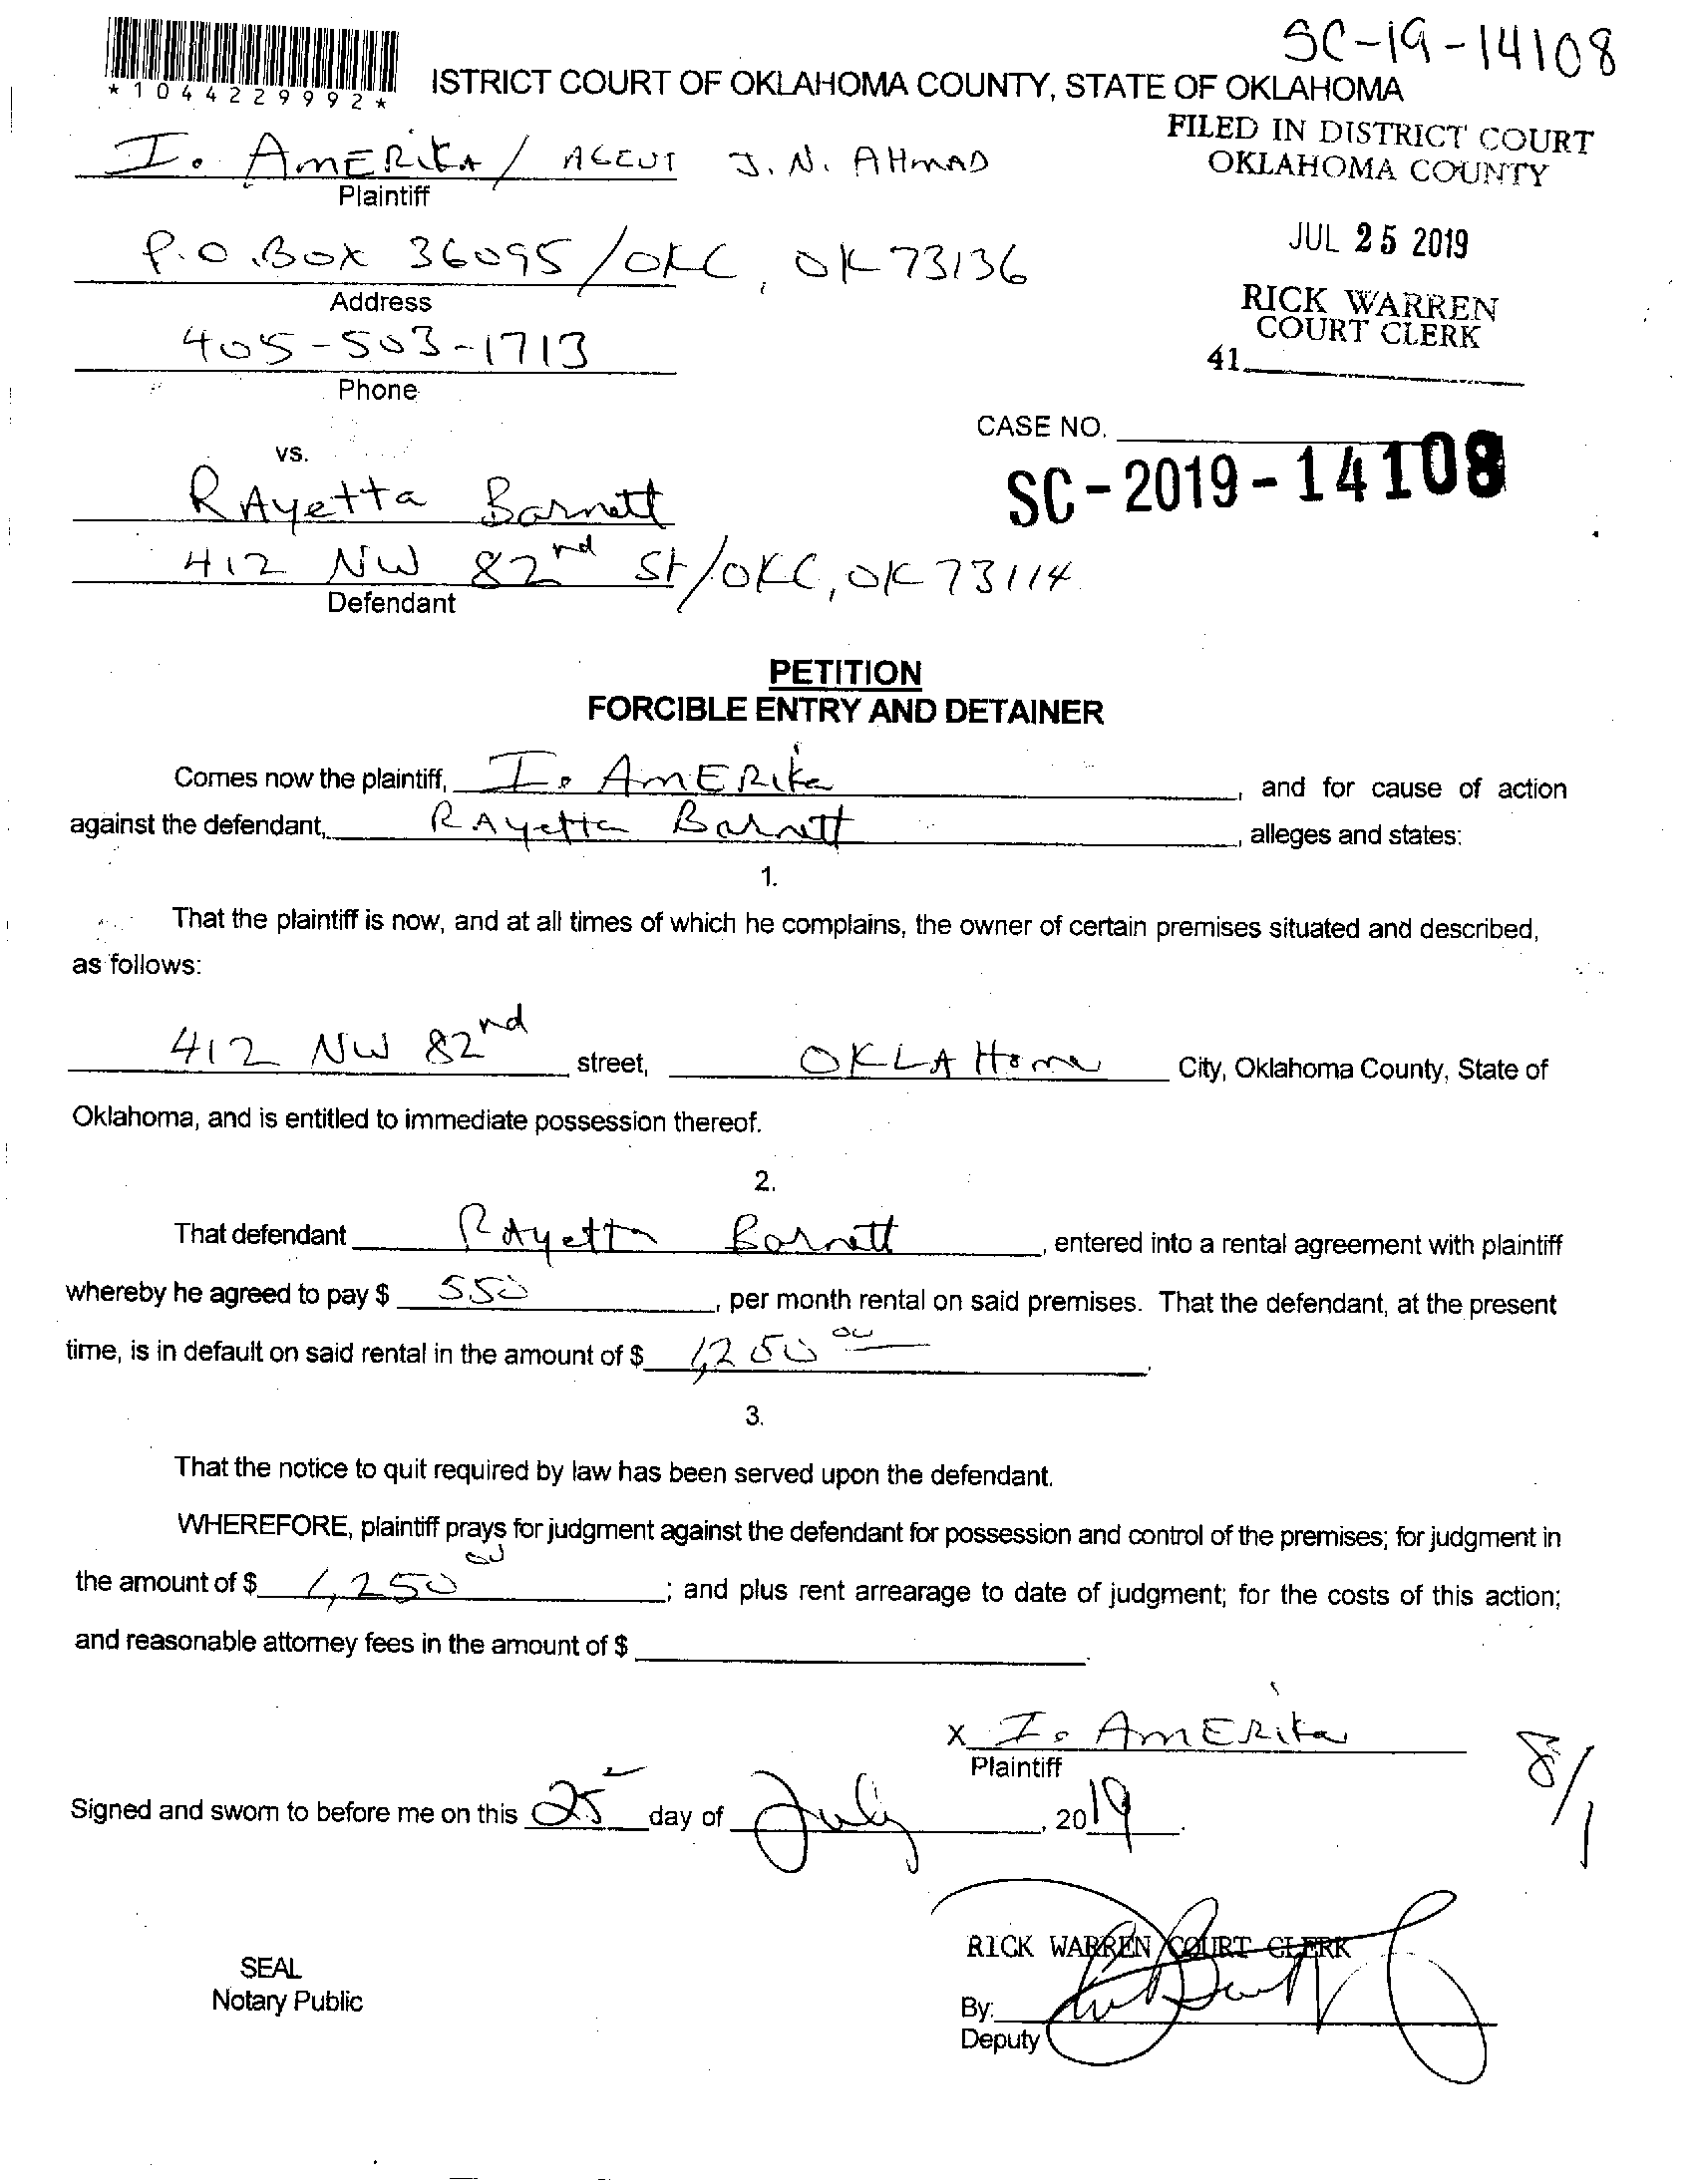 SC-19-14108
*1044229992*
ISTRICT COURT OF OKLAHOMA COUNTY, STATE OF OKLAHOMA
FILED IN DISTRICT COURT
OKLAHOMA COUNTY
I. AmERika / AGENT J. N. AHMAD
Plaintiff
JUL 25 2019
P.O. Box 36095 / OKC, OK 73136
Address
RICK WARREN
COURT CLERK
405-503-1713
41
Phone
CASE NO.
vs.
SC-2019-14108
RAyetta Barnett
412 NW 82nd St / OKC, OK 73114
Defendant
PETITION
FORCIBLE ENTRY AND DETAINER
Comes now the plaintiff, I. AmERika, and for cause of action
against the defendant, RAyetta Barnett, alleges and states:
1.
That the plaintiff is now, and at all times of which he complains, the owner of certain premises situated and described,
as follows:
412 NW 82nd street, OKLAHoma City, Oklahoma County, State of
Oklahoma, and is entitled to immediate possession thereof.
2.
That defendant RAyetta Barnett, entered into a rental agreement with plaintiff
whereby he agreed to pay $ 550, per month rental on said premises. That the defendant, at the present
time, is in default on said rental in the amount of $ 1,250 00.
3.
That the notice to quit required by law has been served upon the defendant.
WHEREFORE, plaintiff prays for judgment against the defendant for possession and control of the premises; for judgment in
the amount of $ 1,250 00; and plus rent arrearage to date of judgment; for the costs of this action;
and reasonable attorney fees in the amount of $ .
X I. AmERika
Plaintiff
8/1
Signed and sworn to before me on this 25 day of July, 2019.
RICK WARREN COURT CLERK
SEAL
Notary Public
By:
Deputy